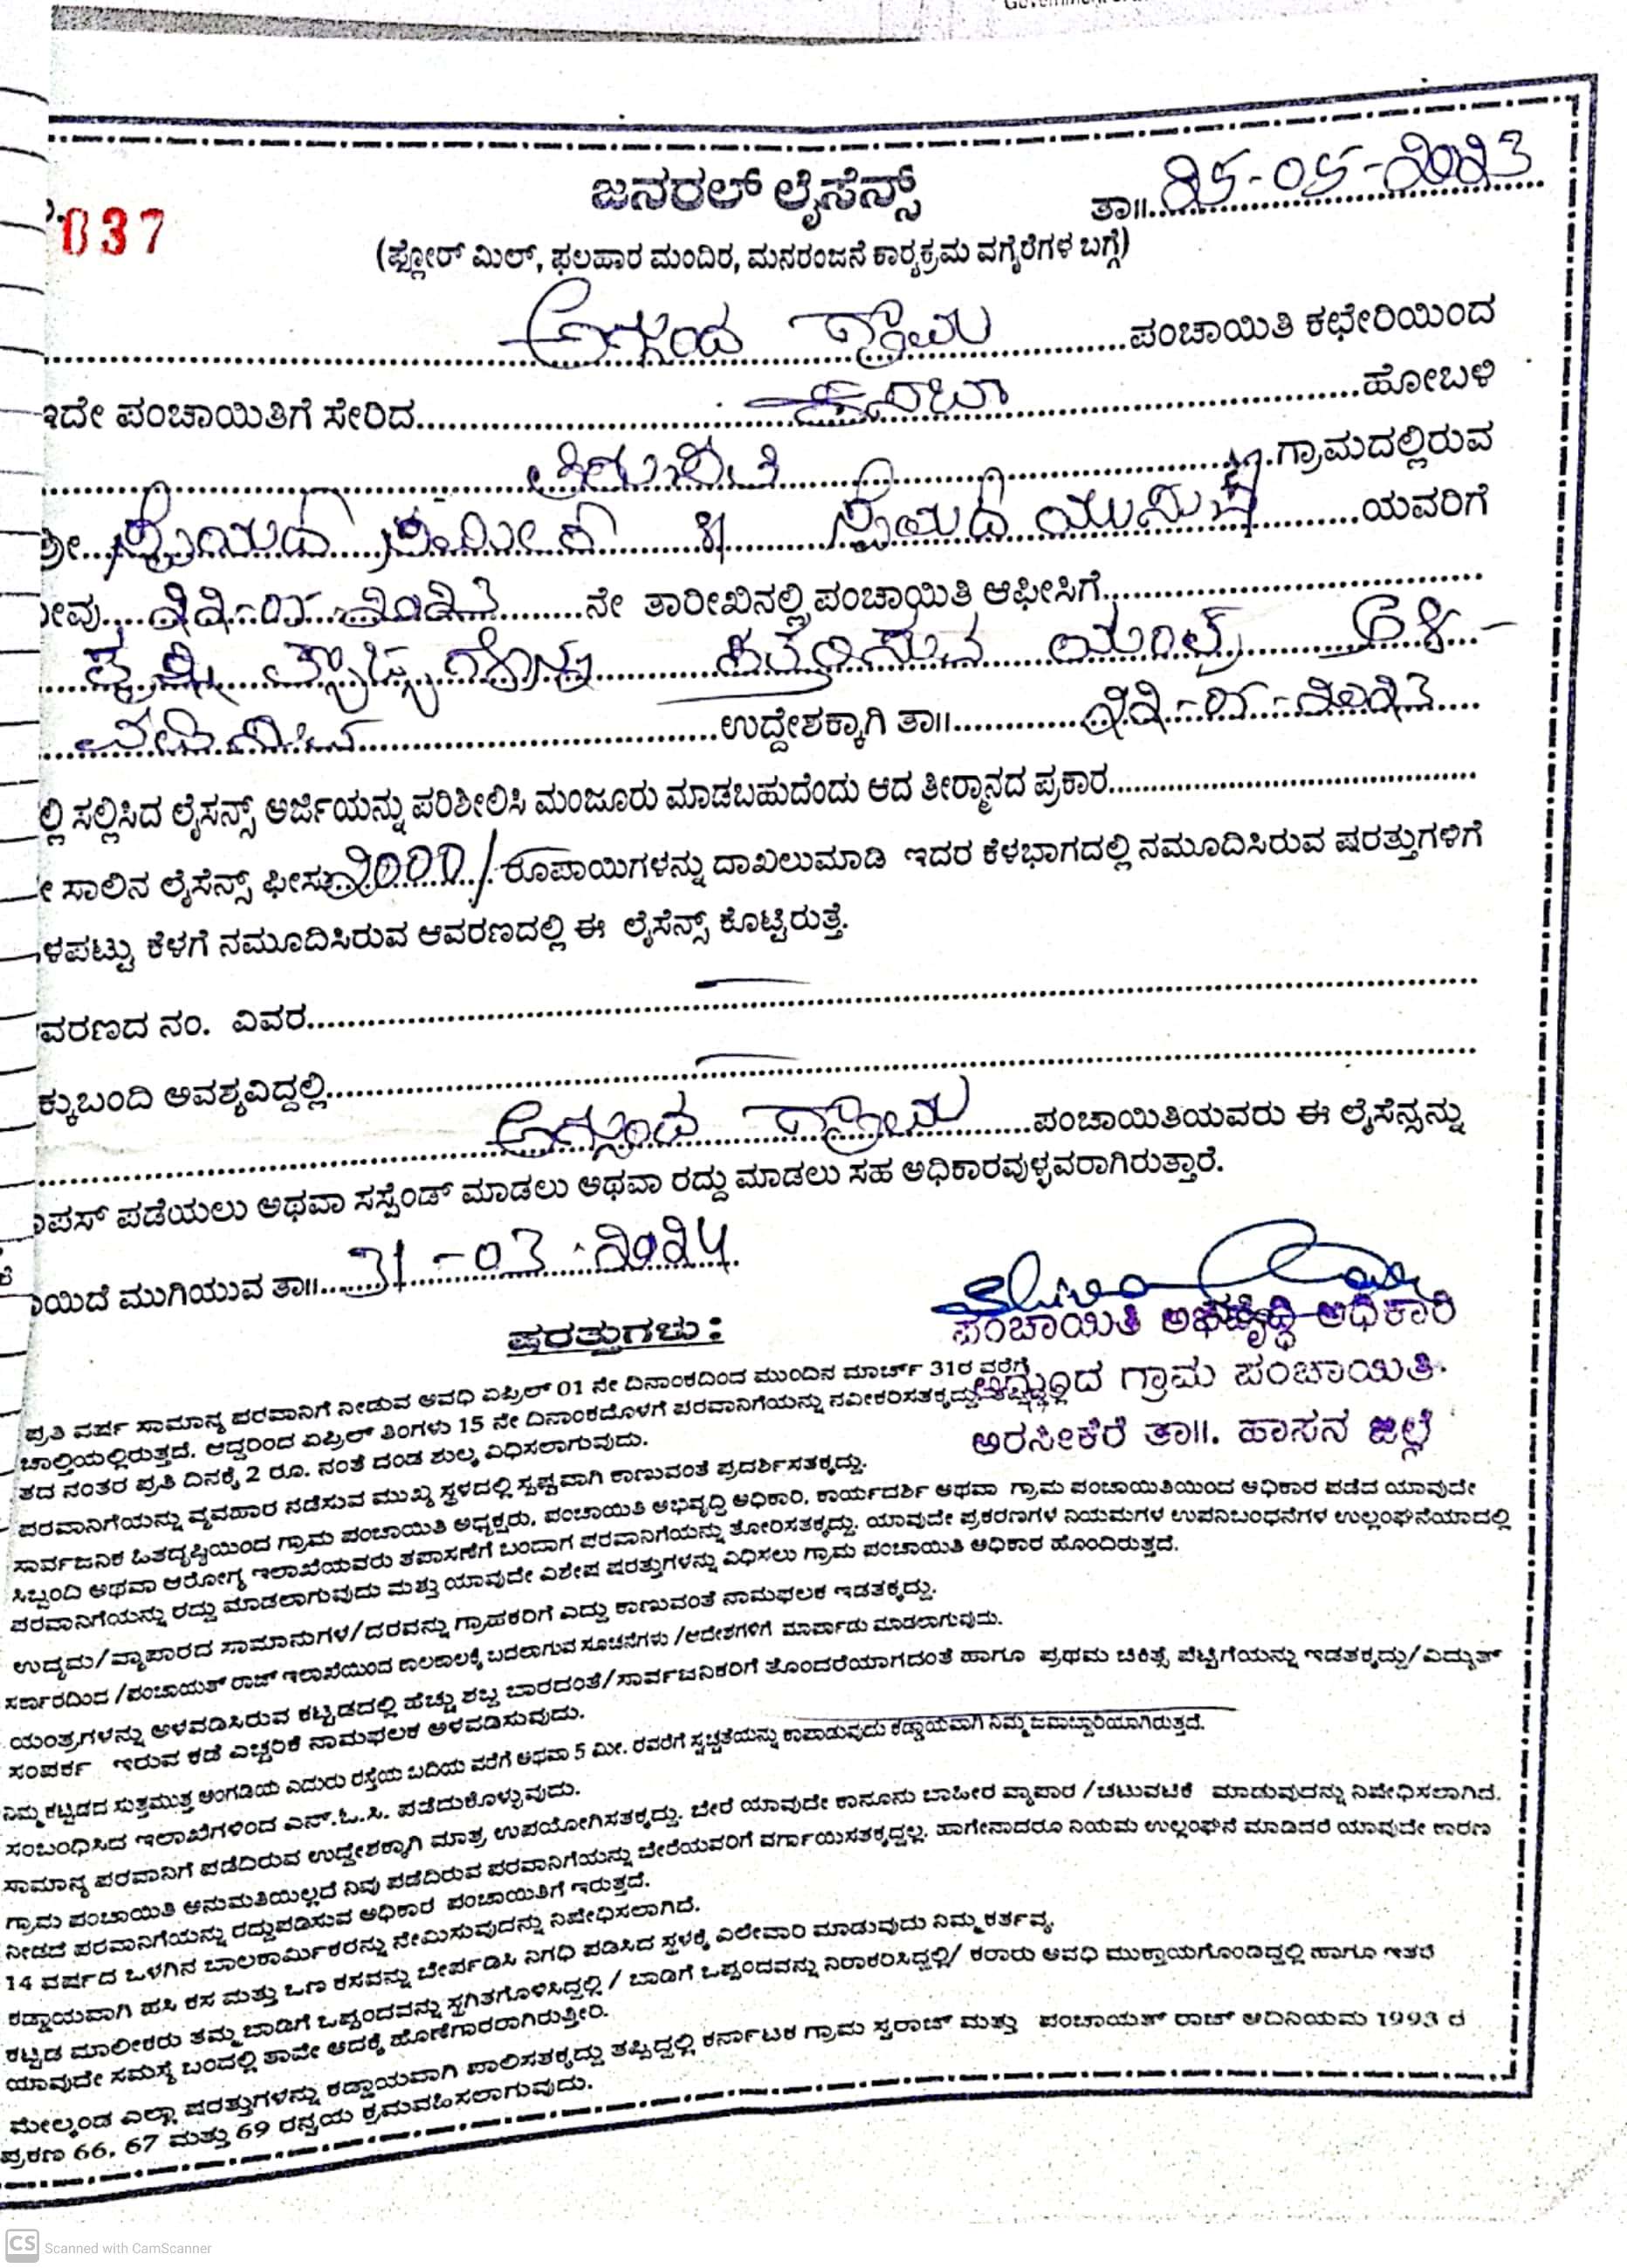 037
ಜನರಲ್ ಲೈಸೆನ್ಸ್
ತಾ॥ 25-05-2023
(ಫ್ಲೋರ್ ಮಿಲ್, ಫಲಹಾರ ಮಂದಿರ, ಮನರಂಜನೆ ಕಾರ್‍ಯಕ್ರಮ ವಗೈರೆಗಳ ಬಗ್ಗೆ)
ಅಗ್ಗುಂದ ಗ್ರಾಮ ಪಂಚಾಯಿತಿ ಕಛೇರಿಯಿಂದ
ಇದೇ ಪಂಚಾಯಿತಿಗೆ ಸೇರಿದ ಕಸಬಾ ಹೋಬಳಿ
ಗ್ರಾಮದಲ್ಲಿರುವ
ಸೈಯದ್ ಯವರಿಗೆ
22-05-2023 ನೇ ತಾರೀಖಿನಲ್ಲಿ ಪಂಚಾಯಿತಿ ಆಫೀಸಿಗೆ
ಯಂತ್ರ
ಉದ್ದೇಶಕ್ಕಾಗಿ ತಾ॥ 22-05-2023
ಲ್ಲಿ ಸಲ್ಲಿಸಿದ ಲೈಸನ್ಸ್ ಅರ್ಜಿಯನ್ನು ಪರಿಶೀಲಿಸಿ ಮಂಜೂರು ಮಾಡಬಹುದೆಂದು ಆದ ತೀರ್‍ಮಾನದ ಪ್ರಕಾರ
ಸಾಲಿನ ಲೈಸೆನ್ಸ್ ಫೀಸು 2000/ ರೂಪಾಯಿಗಳನ್ನು ದಾಖಲುಮಾಡಿ ಇದರ ಕೆಳಭಾಗದಲ್ಲಿ ನಮೂದಿಸಿರುವ ಷರತ್ತುಗಳಿಗೆ
ಳಪಟ್ಟು ಕೆಳಗೆ ನಮೂದಿಸಿರುವ ಆವರಣದಲ್ಲಿ ಈ ಲೈಸೆನ್ಸ್ ಕೊಟ್ಟಿರುತ್ತೆ.
ವರಣದ ನಂ. ವಿವರ
ಕ್ಕುಬಂದಿ ಅವಶ್ಯವಿದ್ದಲ್ಲಿ
ಅಗ್ಗುಂದ ಗ್ರಾಮ ಪಂಚಾಯಿತಿಯವರು ಈ ಲೈಸೆನ್ಸನ್ನು
ಪಸ್ ಪಡೆಯಲು ಅಥವಾ ಸಸ್ಪೆಂಡ್ ಮಾಡಲು ಅಥವಾ ರದ್ದು ಮಾಡಲು ಸಹ ಅಧಿಕಾರವುಳ್ಳವರಾಗಿರುತ್ತಾರೆ.
ಯಿದೆ ಮುಗಿಯುವ ತಾ॥ 31-03-2024
ಪಂಚಾಯಿತಿ ಅಭಿವೃದ್ಧಿ ಅಧಿಕಾರಿ
ಅಗ್ಗುಂದ ಗ್ರಾಮ ಪಂಚಾಯಿತಿ.
ಅರಸೀಕೆರೆ ತಾ॥. ಹಾಸನ ಜಿಲ್ಲೆ
ಷರತ್ತುಗಳು :
ಪ್ರತಿ ವರ್ಷ ಸಾಮಾನ್ಯ ಪರವಾನಿಗೆ ನೀಡುವ ಅವಧಿ ಏಪ್ರಿಲ್ 01 ನೇ ದಿನಾಂಕದಿಂದ ಮುಂದಿನ ಮಾರ್ಚ್ 31ರ ವರೆಗೆ
ಚಾಲ್ತಿಯಲ್ಲಿರುತ್ತದೆ. ಆದ್ದರಿಂದ ಏಪ್ರಿಲ್ ತಿಂಗಳು 15 ನೇ ದಿನಾಂಕದೊಳಗೆ ಪರವಾನಿಗೆಯನ್ನು ನವೀಕರಿಸತಕ್ಕದ್ದು
ತದ ನಂತರ ಪ್ರತಿ ದಿನಕ್ಕೆ 2 ರೂ. ನಂತೆ ದಂಡ ಶುಲ್ಕ ವಿಧಿಸಲಾಗುವುದು.
ಪರವಾನಿಗೆಯನ್ನು ವ್ಯವಹಾರ ನಡೆಸುವ ಮುಖ್ಯ ಸ್ಥಳದಲ್ಲಿ ಸ್ಪಷ್ಟವಾಗಿ ಕಾಣುವಂತೆ ಪ್ರದರ್ಶಿಸತಕ್ಕದ್ದು.
ಸಾರ್ವಜನಿಕ ಹಿತದೃಷ್ಟಿಯಿಂದ ಗ್ರಾಮ ಪಂಚಾಯಿತಿ ಅಧ್ಯಕ್ಷರು, ಪಂಚಾಯಿತಿ ಅಭಿವೃದ್ಧಿ ಅಧಿಕಾರಿ, ಕಾರ್ಯದರ್ಶಿ ಅಥವಾ ಗ್ರಾಮ ಪಂಚಾಯಿತಿಯಿಂದ ಅಧಿಕಾರ ಪಡೆದ ಯಾವುದೇ
ಸಿಬ್ಬಂದಿ ಅಥವಾ ಆರೋಗ್ಯ ಇಲಾಖೆಯವರು ತಪಾಸಣೆಗೆ ಬಂದಾಗ ಪರವಾನಿಗೆಯನ್ನು ತೋರಿಸತಕ್ಕದ್ದು. ಯಾವುದೇ ಪ್ರಕರಣಗಳ ನಿಯಮಗಳ ಉಪನಿಬಂಧನೆಗಳ ಉಲ್ಲಂಘನೆಯಾದಲ್ಲಿ
ಪರವಾನಿಗೆಯನ್ನು ರದ್ದು ಮಾಡಲಾಗುವುದು ಮತ್ತು ಯಾವುದೇ ವಿಶೇಷ ಷರತ್ತುಗಳನ್ನು ವಿಧಿಸಲು ಗ್ರಾಮ ಪಂಚಾಯಿತಿ ಅಧಿಕಾರ ಹೊಂದಿರುತ್ತದೆ.
ಉದ್ಯಮ/ವ್ಯಾಪಾರದ ಸಾಮಾನುಗಳ/ದರವನ್ನು ಗ್ರಾಹಕರಿಗೆ ಎದ್ದು ಕಾಣುವಂತೆ ನಾಮಫಲಕ ಇಡತಕ್ಕದ್ದು.
ಸರ್ಕಾರದಿಂದ /ಪಂಚಾಯತ್ ರಾಜ್ ಇಲಾಖೆಯಿಂದ ಕಾಲಕಾಲಕ್ಕೆ ಬದಲಾಗುವ ಸೂಚನೆಗಳು /ಆದೇಶಗಳಿಗೆ ಮಾರ್ಪಾಡು ಮಾಡಲಾಗುವುದು.
ಯಂತ್ರಗಳನ್ನು ಅಳವಡಿಸಿರುವ ಕಟ್ಟಡದಲ್ಲಿ ಹೆಚ್ಚು ಶಬ್ದ ಬಾರದಂತೆ/ಸಾರ್ವಜನಿಕರಿಗೆ ತೊಂದರೆಯಾಗದಂತೆ ಹಾಗೂ ಪ್ರಥಮ ಚಿಕಿತ್ಸೆ ಪೆಟ್ಟಿಗೆಯನ್ನು ಇಡತಕ್ಕದ್ದು/ವಿದ್ಯುತ್
ಸಂಪರ್ಕ ಇರುವ ಕಡೆ ಎಚ್ಚರಿಕೆ ನಾಮಫಲಕ ಅಳವಡಿಸುವುದು.
ನಿಮ್ಮ ಕಟ್ಟಡದ ಸುತ್ತಮುತ್ತ ಅಂಗಡಿಯ ಎದುರು ರಸ್ತೆಯ ಬದಿಯ ವರೆಗೆ ಅಥವಾ 5 ಮೀ. ರವರೆಗೆ ಸ್ವಚ್ಚತೆಯನ್ನು ಕಾಪಾಡುವುದು ಕಡ್ಡಾಯವಾಗಿ ನಿಮ್ಮ ಜವಾಬ್ದಾರಿಯಾಗಿರುತ್ತದೆ.
ಸಂಬಂಧಿಸಿದ ಇಲಾಖೆಗಳಿಂದ ಎನ್.ಓ.ಸಿ. ಪಡೆದುಕೊಳ್ಳುವುದು.
ಸಾಮಾನ್ಯ ಪರವಾನಿಗೆ ಪಡೆದಿರುವ ಉದ್ದೇಶಕ್ಕಾಗಿ ಮಾತ್ರ ಉಪಯೋಗಿಸತಕ್ಕದ್ದು. ಬೇರೆ ಯಾವುದೇ ಕಾನೂನು ಬಾಹೀರ ವ್ಯಾಪಾರ /ಚಟುವಟಿಕೆ ಮಾಡುವುದನ್ನು ನಿಷೇಧಿಸಲಾಗಿದೆ.
ಗ್ರಾಮ ಪಂಚಾಯಿತಿ ಅನುಮತಿಯಿಲ್ಲದೆ ನಿವು ಪಡೆದಿರುವ ಪರವಾನಿಗೆಯನ್ನು ಬೇರೆಯವರಿಗೆ ವರ್ಗಾಯಿಸತಕ್ಕದ್ದಲ್ಲ. ಹಾಗೇನಾದರೂ ನಿಯಮ ಉಲ್ಲಂಘನೆ ಮಾಡಿದರೆ ಯಾವುದೇ ಕಾರಣ
ನೀಡದೆ ಪರವಾನಿಗೆಯನ್ನು ರದ್ದುಪಡಿಸುವ ಅಧಿಕಾರ ಪಂಚಾಯಿತಿಗೆ ಇರುತ್ತದೆ.
14 ವರ್ಷದ ಒಳಗಿನ ಬಾಲಕಾರ್ಮಿಕರನ್ನು ನೇಮಿಸುವುದನ್ನು ನಿಷೇಧಿಸಲಾಗಿದೆ.
ಕಡ್ಡಾಯವಾಗಿ ಹಸಿ ಕಸ ಮತ್ತು ಒಣ ಕಸವನ್ನು ಬೇರ್ಪಡಿಸಿ ನಿಗಧಿ ಪಡಿಸಿದ ಸ್ಥಳಕ್ಕೆ ವಿಲೇವಾರಿ ಮಾಡುವುದು ನಿಮ್ಮ ಕರ್ತವ್ಯ.
ಕಟ್ಟಡ ಮಾಲೀಕರು ತಮ್ಮ ಬಾಡಿಗೆ ಒಪ್ಪಂದವನ್ನು ಸ್ಥಗಿತಗೊಳಿಸಿದ್ದಲ್ಲಿ / ಬಾಡಿಗೆ ಒಪ್ಪಂದವನ್ನು ನಿರಾಕರಿಸಿದ್ದಲ್ಲಿ/ ಕರಾರು ಅವಧಿ ಮುಕ್ತಾಯಗೊಂಡಿದ್ದಲ್ಲಿ ಹಾಗೂ ಇತರೆ
ಯಾವುದೇ ಸಮಸ್ಯೆ ಬಂದಲ್ಲಿ ತಾವೇ ಅದಕ್ಕೆ ಹೊಣೆಗಾರರಾಗಿರುತ್ತೀರಿ.
ಮೇಲ್ಕಂಡ ಎಲ್ಲಾ ಷರತ್ತುಗಳನ್ನು ಕಡ್ಡಾಯವಾಗಿ ಪಾಲಿಸತಕ್ಕದ್ದು ತಪ್ಪಿದ್ದಲ್ಲಿ ಕರ್ನಾಟಕ ಗ್ರಾಮ ಸ್ವರಾಜ್ ಮತ್ತು ಪಂಚಾಯತ್ ರಾಜ್ ಅದಿನಿಯಮ 1993 ರ
ಪ್ರಕರಣ 66, 67 ಮತ್ತು 69 ರನ್ವಯ ಕ್ರಮವಹಿಸಲಾಗುವುದು.
CS Scanned with CamScanner